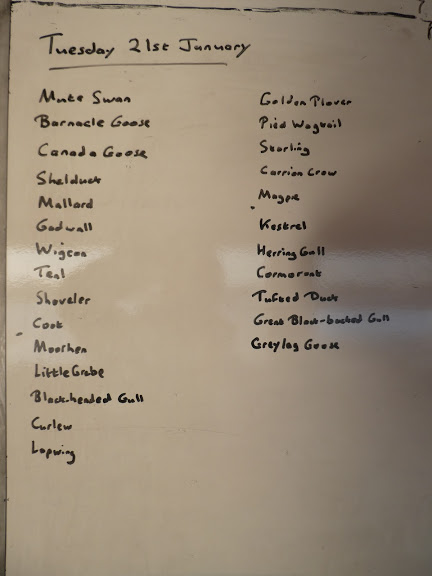 Tuesday 21st January
Mute Swan
Barnacle Goose
Canada Goose
Shelduck
Mallard
Gadwall
Wigeon
Teal
Shoveler
Coot
Moorhen
Little Grebe
Black-headed Gull
Curlew
Lapwing
Golden Plover
Pied Wagtail
Starling
Carrion Crow
Magpie
Kestrel
Herring Gull
Cormorant
Tufted Duck
Great Black-backed Gull
Greylag Goose